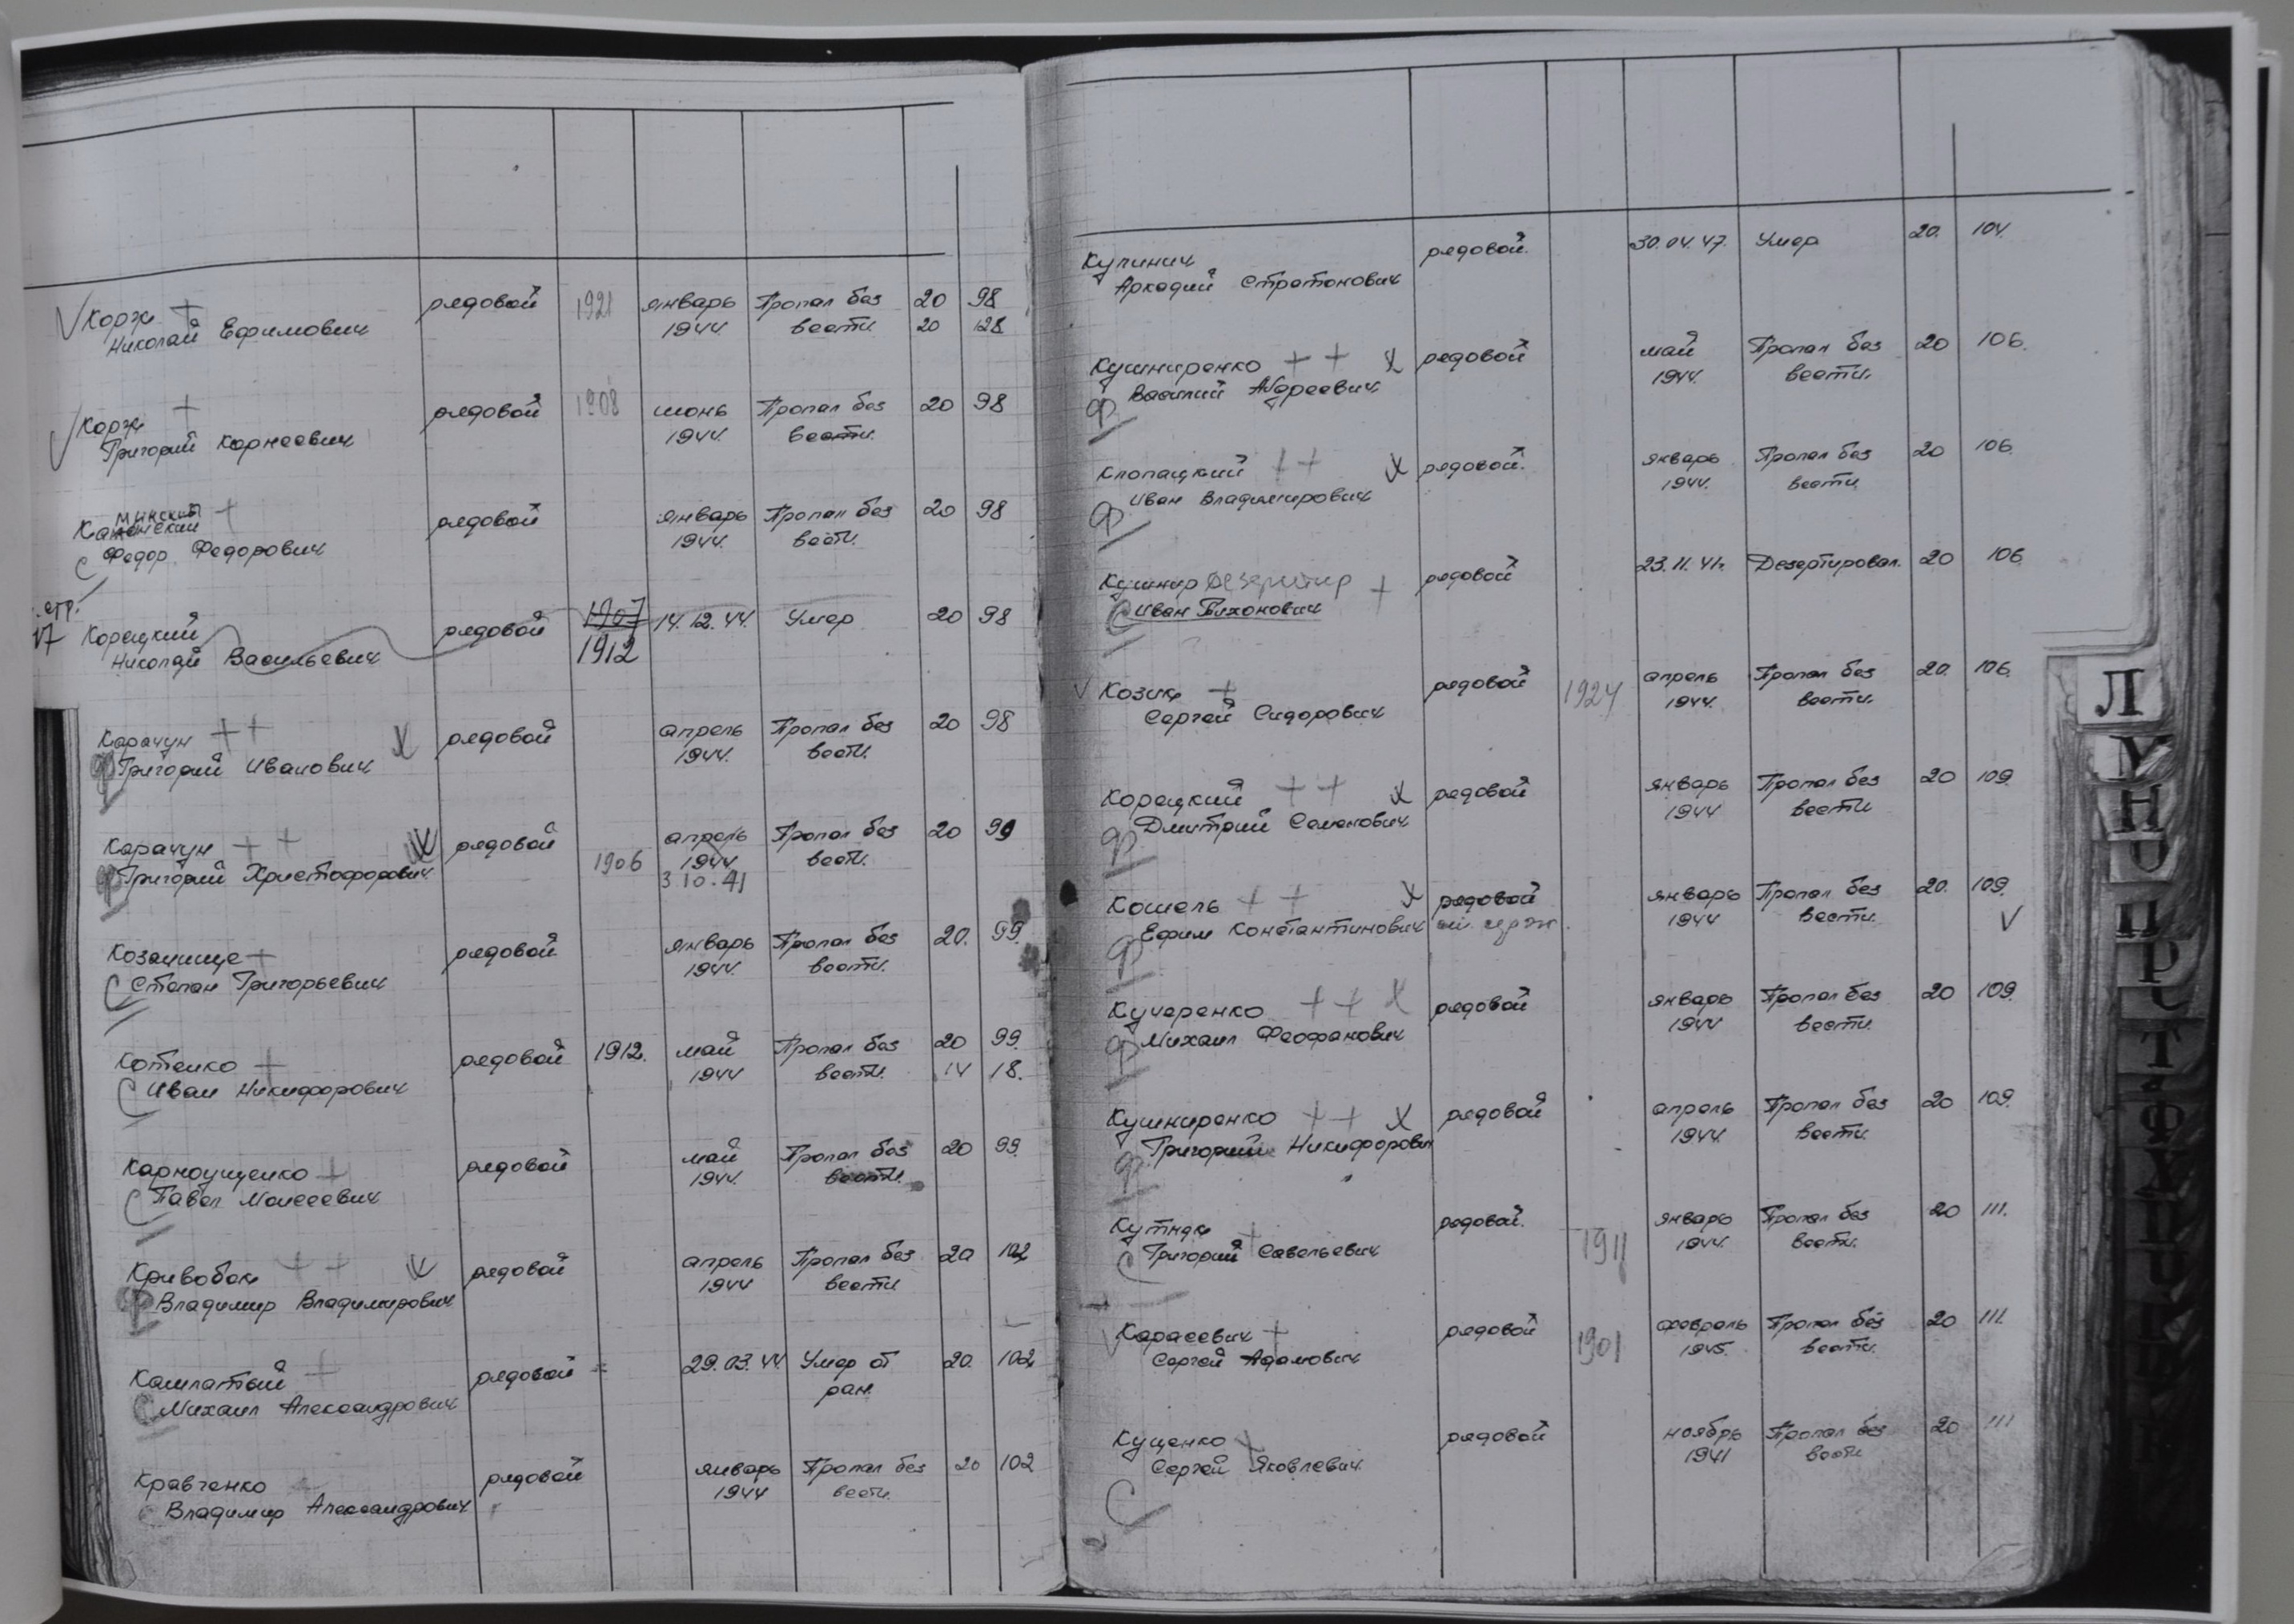 Корж + рядовой 1921 январь Пропал без 20 98
Николай Ефимович 1944 вести 20 128
Корж + рядовой 1908 июнь Пропал без 20 98
Григорий Корнеевич 1944. вести.
минский
Ка + рядовой январь Пропал без 20 98
С Федор Федорович 1944. вести.
стр.
Корецкий рядовой 1907 14.12.44. Умер 20 98
Николай Васильевич 1912
Карачун ++ х рядовой апрель Пропал без 20 98
Ф Григорий Иванович 1944. вести.
Карачун ++ х рядовой апрель Пропал без 20 99
Ф Григорий Христофорович 1906 1944 вести.
3.10.41
Козачище + рядовой январь Пропал без 20. 99.
С Степан Григорьевич 1944. вести.
Котенко + рядовой 1912. май Пропал без 20 99.
С Иван Никифорович 1944 вести. 14 18.
Карноущенко + рядовой май Пропал без 20 99.
С Павел Моисеевич 1944. вести.
Кривобок ++ х рядовой апрель Пропал без 20 102
Ф Владимир Владимирович 1944 вести
Кашлатый + рядовой 29.03.44 Умер от 20. 102
С Михаил Александрович ран.
Кравченко рядовой январь Пропал без 20 102
С Владимир Александрович 1944 вести.
Купинич рядовой. 30.04.47. Умер 20. 104.
Аркадий Стратонович
Кушниренко ++ х рядовой май Пропал без 20 106.
Ф Василий Андреевич 1944. вести.
Клопацкий ++ х рядовой. январь Пропал без 20 106.
Ф Иван Владимирович 1944. вести.
Кушнир дезертир + рядовой 23.11.41г. Дезертировал. 20 106
С Иван Тихонович
Козик + рядовой 1924 апрель Пропал без 20. 106.
Сергей Сидорович 1944. вести.
Корецкий ++ х рядовой январь Пропал без 20 109.
Ф Дмитрий Семенович 1944 вести
Кошель ++ х рядовой январь Пропал без 20. 109.
Ф Ефим Константинович 1944 вести.
Кучеренко ++ х рядовой январь Пропал без 20 109.
Ф Михаил Феофанович 1944 вести.
Кушниренко ++ х рядовой апрель Пропал без 20 109.
Ф Григорий Никифорович 1944. вести.
Кутняк + рядовой. январь Пропал без 20 111.
С Григорий Савельевич 1911 1944. вести.
Карасевич + рядовой февраль Пропал без 20 111.
Сергей Адамович 1901 1945. вести.
Куценко + рядовой ноябрь Пропал без 20 111
С Сергей Яковлевич 1941 вести
Л
М
Н
О
П
Р
С
Т